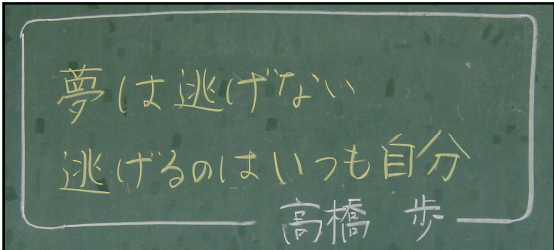 夢は逃げない
逃げるのはいつも自分
高橋 歩